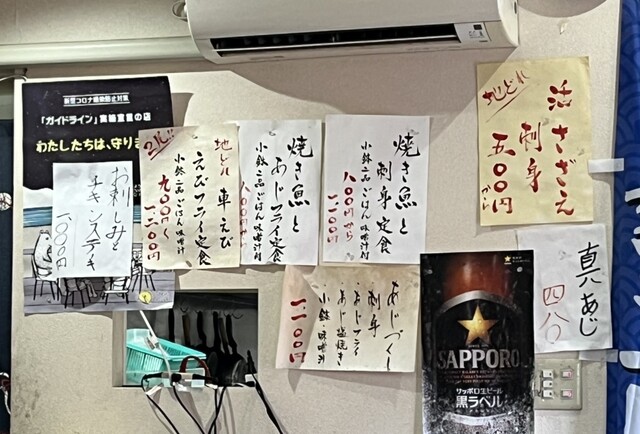 新型コロナ感染防止対策
「ガイドライン」実践宣言の店
わたしたちは、守りま
お刺しみと
チキンステーキ
1000円
2 L!!
地どれ
車えび
えびフライ定食
小鉢二品ごはん味噌汁
九〇〇から
一、二〇〇円
焼き魚と
あじフライ定食
小鉢二品ごはん味噌汁付
八〇〇円から
焼き魚と
刺身定食
小鉢二品ごはん味噌汁付
八〇〇円から
一、一〇〇円
地どれ
活さざえ
刺身
五〇〇円
から
真あじ
四八〇
あじづくし
刺身
・あじフライ
・あじ塩焼き
小鉢・味噌汁付
一、一〇〇円
SAPPORO
サッポロ生ビール
黒ラベル